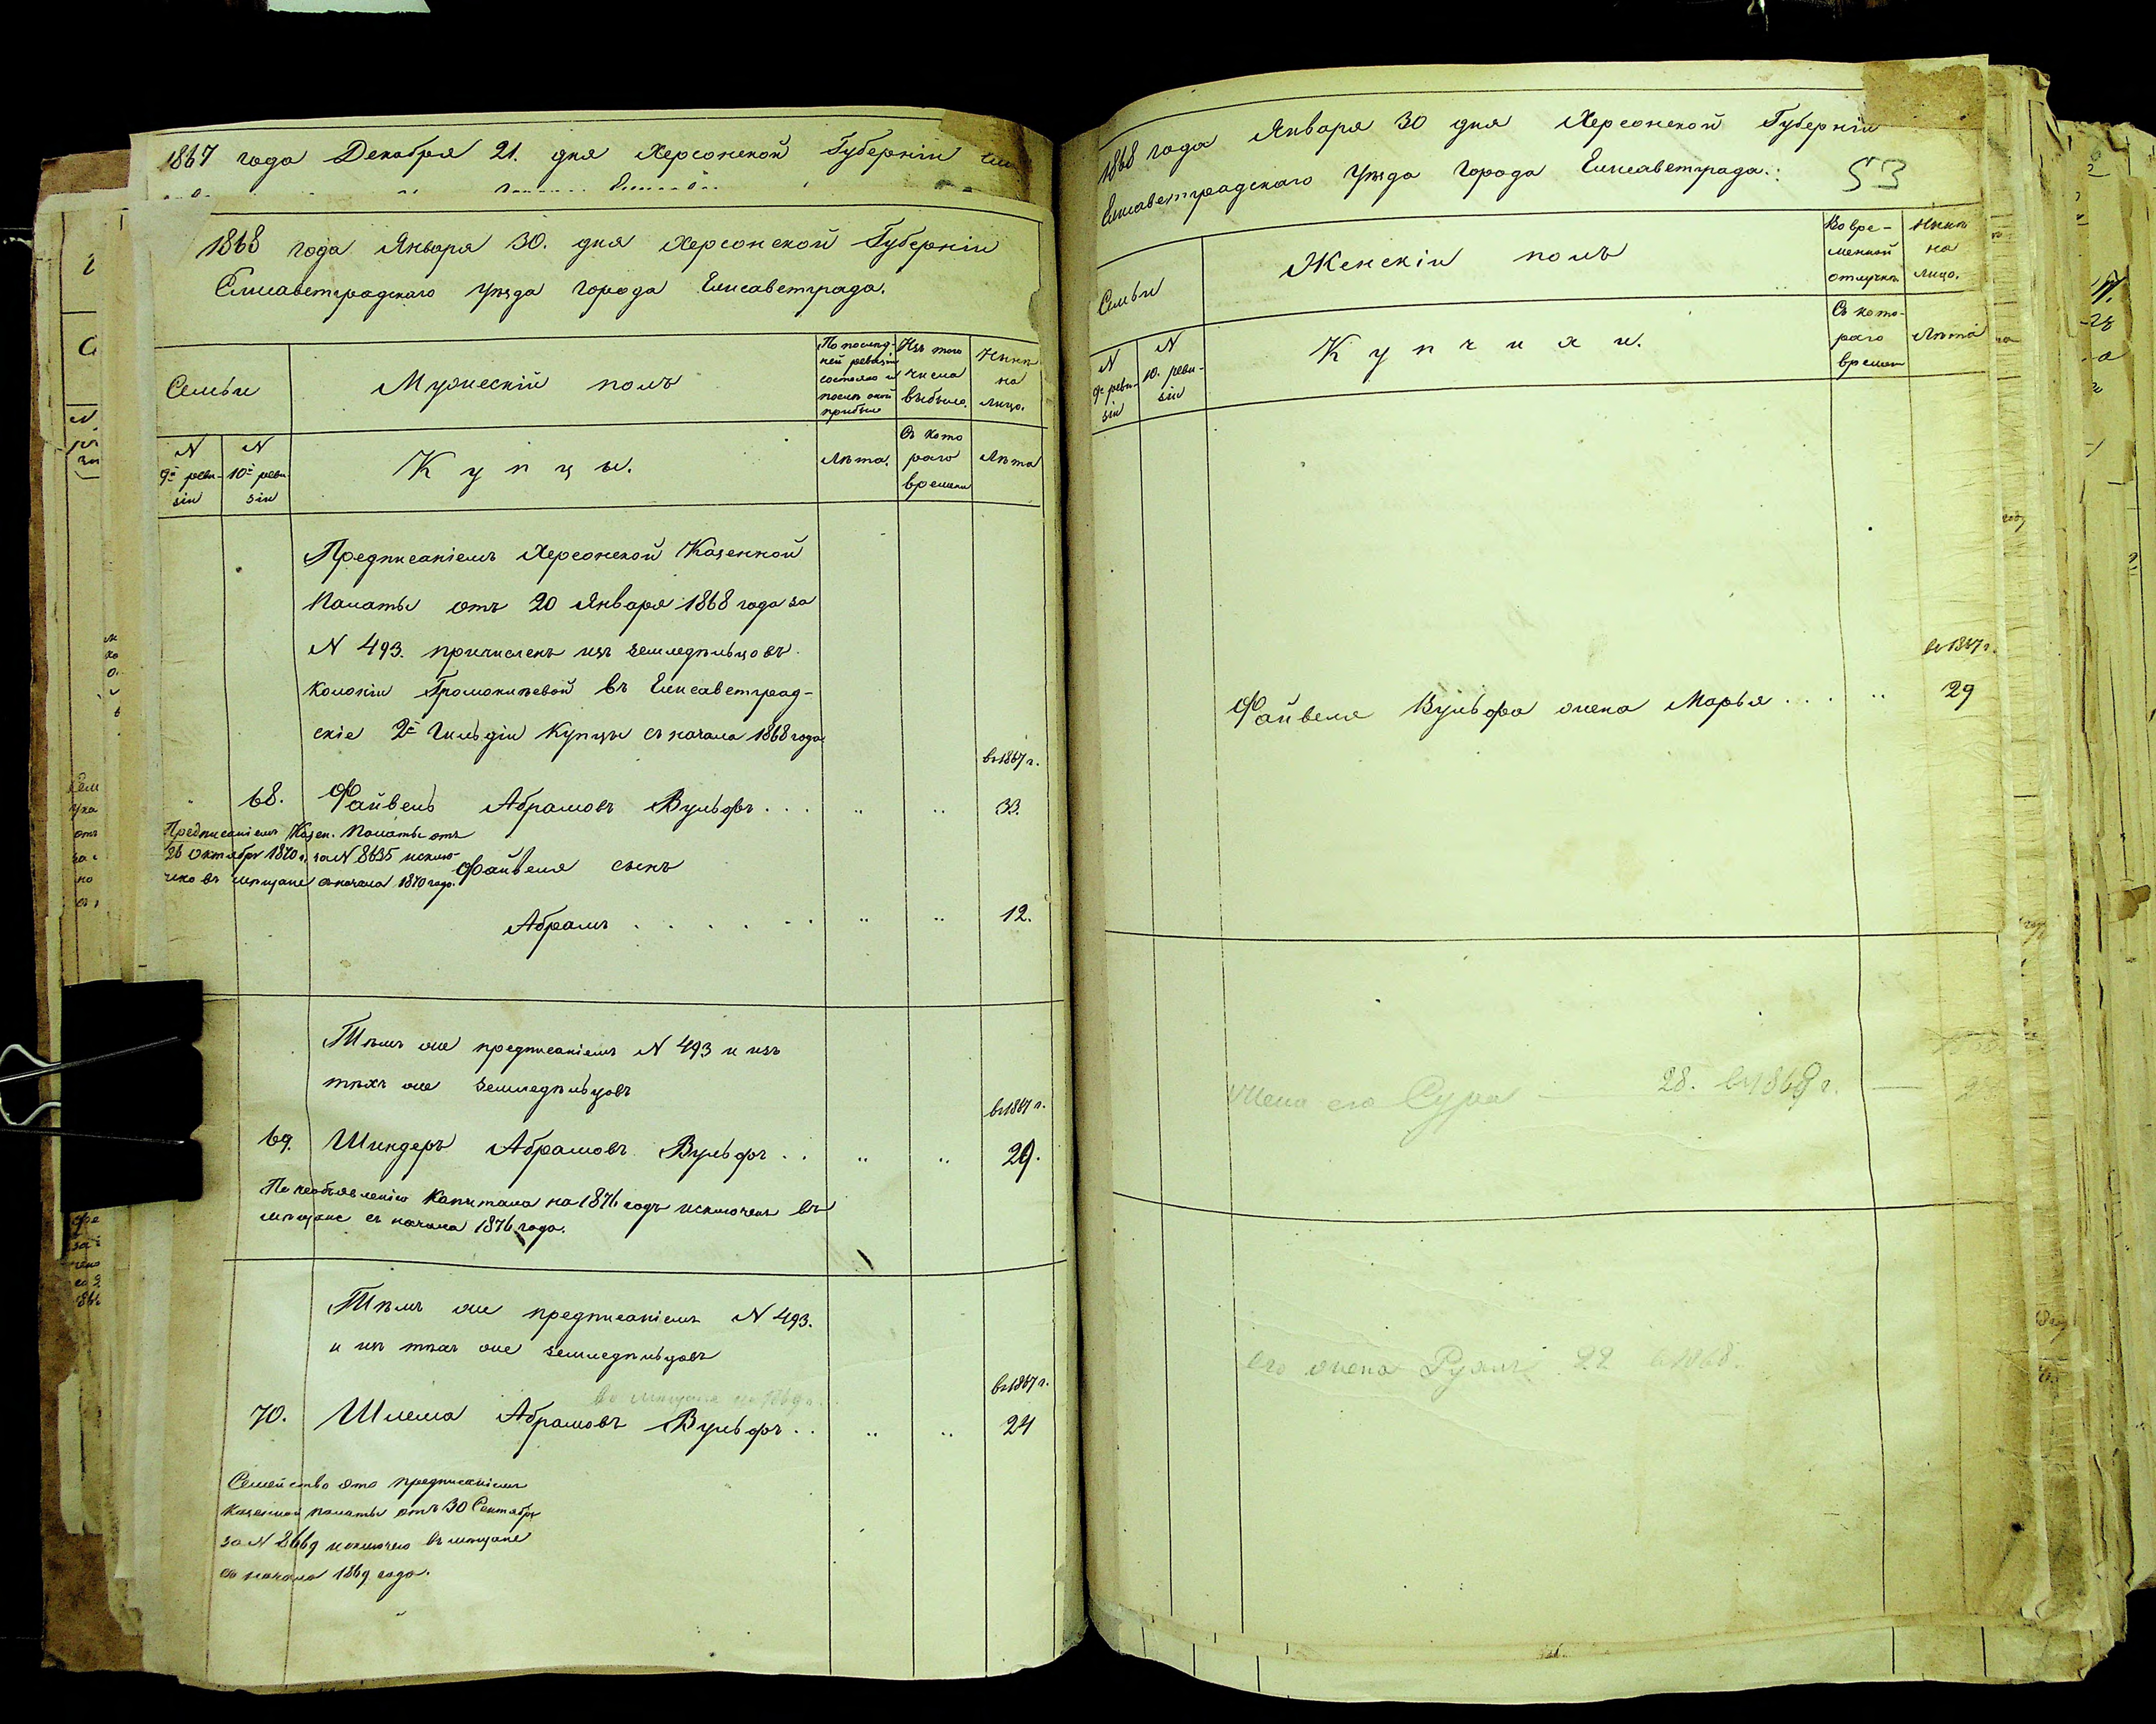 1867 года Декабря 21. дня Херсонской Губерніи
1868 года Января 30. дня Херсонской Губерніи
Елисаветградскаго уѣзда города Елисаветграда.
Семьи
Мужескій полъ
По послѣд-
ней ревизіи
состояло и
послѣ оной
прибыло
Изъ того
числа
выбыло.
Нынѣ
на
лицо.
N
9й реви-
зіи
N
10й реви
зіи
Купцы.
Лѣта.
Съ кото
раго
времени
Лѣта
Предписаніемъ Херсонской Казенной
Палаты отъ 20 Января 1868 года за
N 493. причисленъ изъ земледѣльцовъ
колоніи Громоклѣевой въ Елисаветград-
скіе 2й Гильдіи Купцы съ начала 1868 года
въ 1867 г.
68. Файвель Абрамовъ Вульфъ . . . „ „ 33.
Предписаніемъ Казен. Палаты отъ
26 Октября 1870 г. за N 8635 исклю-
чено въ мѣщане съ начала 1870 года.
Файвеля сынъ
Абрамъ . . . . . . „ „ 12.
Тѣмъ же предписаніемъ N 493 и изъ
тѣхъ же земледѣльцовъ
въ 1867 г.
69. Шиндеръ Абрамовъ Вульфъ . . „ „ 29.
По необъявленію капитала на 1876 годъ исключенъ въ
мѣщане съ начала 1876 года.
Тѣмъ же предписаніемъ N 493.
и изъ тѣхъ же земледѣльцовъ
въ мѣщане съ 1869 г.
въ 1867 г.
70. Шлема Абрамовъ Вульфъ . . „ „ 24
Семейство это предписаніемъ
Казенной палаты отъ 30 Сентября
за N 8669 исключено въ мѣщане
съ начала 1869 года.
1868 года Января 30 дня Херсонской Губерніи
Елисаветградскаго уѣзда города Елисаветграда.
53
Семьи
Женскій полъ
Во вре-
менной
отлучкѣ
Нынѣ
на
лицо.
N
9й реви-
зіи
N
10. реви-
зіи
Купчихи.
Съ кото-
раго
времени
Лѣта
въ 1867 г.
Файвеля Вульфа жена Марья . . . „ 29
жена его Сура — 28. въ 1868 г. —
его жена Рухля 22 въ 1868.